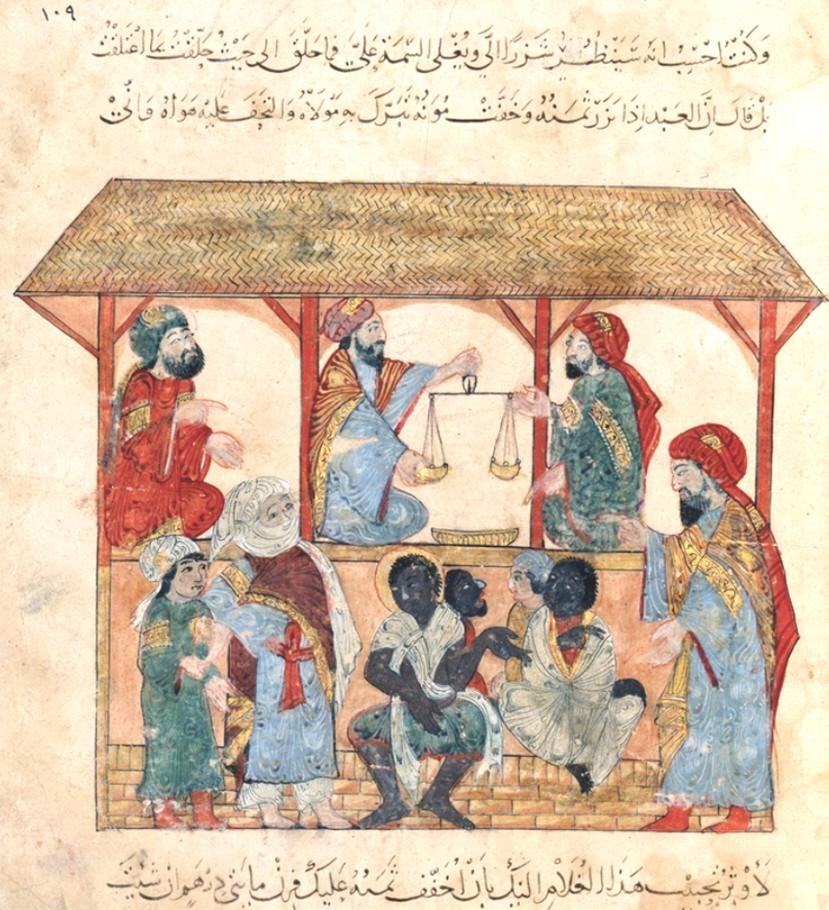 ١٠٩
وكنت احسب انه سينظر شزرا الي ويغلي السمة علي فما حلق الى حيث حلقت ولا اعتلق
بل قال ان العبد اذا نزر ثمنه وخفت مونه تبرك به مولاه والتحف عليه هواه واني
لاوثر تحبيب هذا الغلام اليك بان اخفف ثمنه عليك فزن مايتي درهم ان شيت